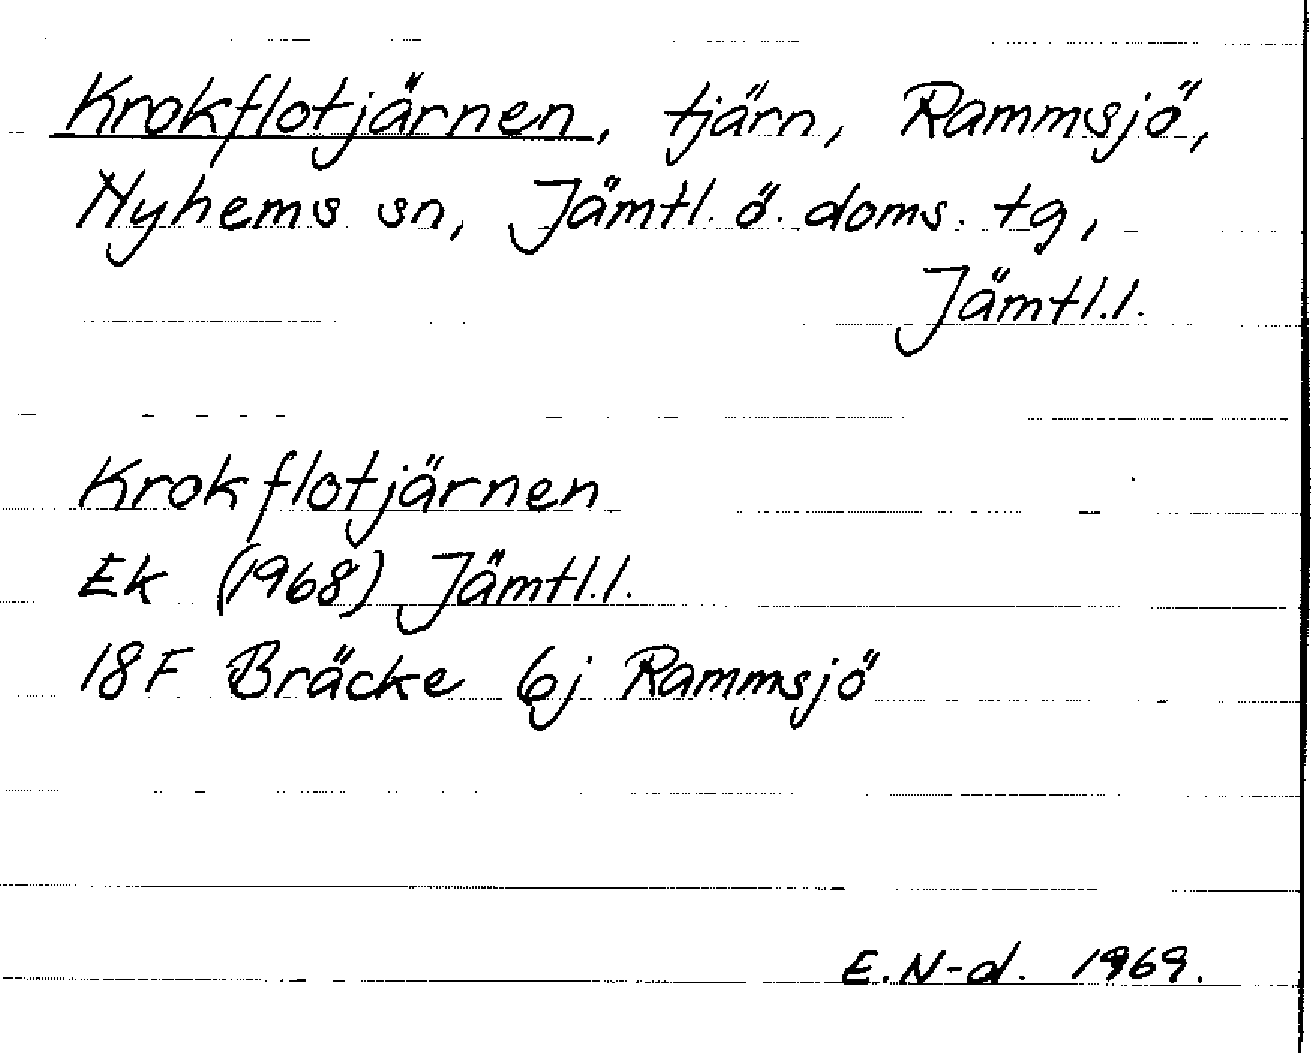 Krokflotjärnen, tjärn, Rammsjö,
Nyhems sn, Jämtl. ö. doms. tg,
Jämtl.l.
Krokflotjärnen
Ek (1968) Jämtl.l.
18F Bräcke 6j Rammsjö
E.N-d. 1969.